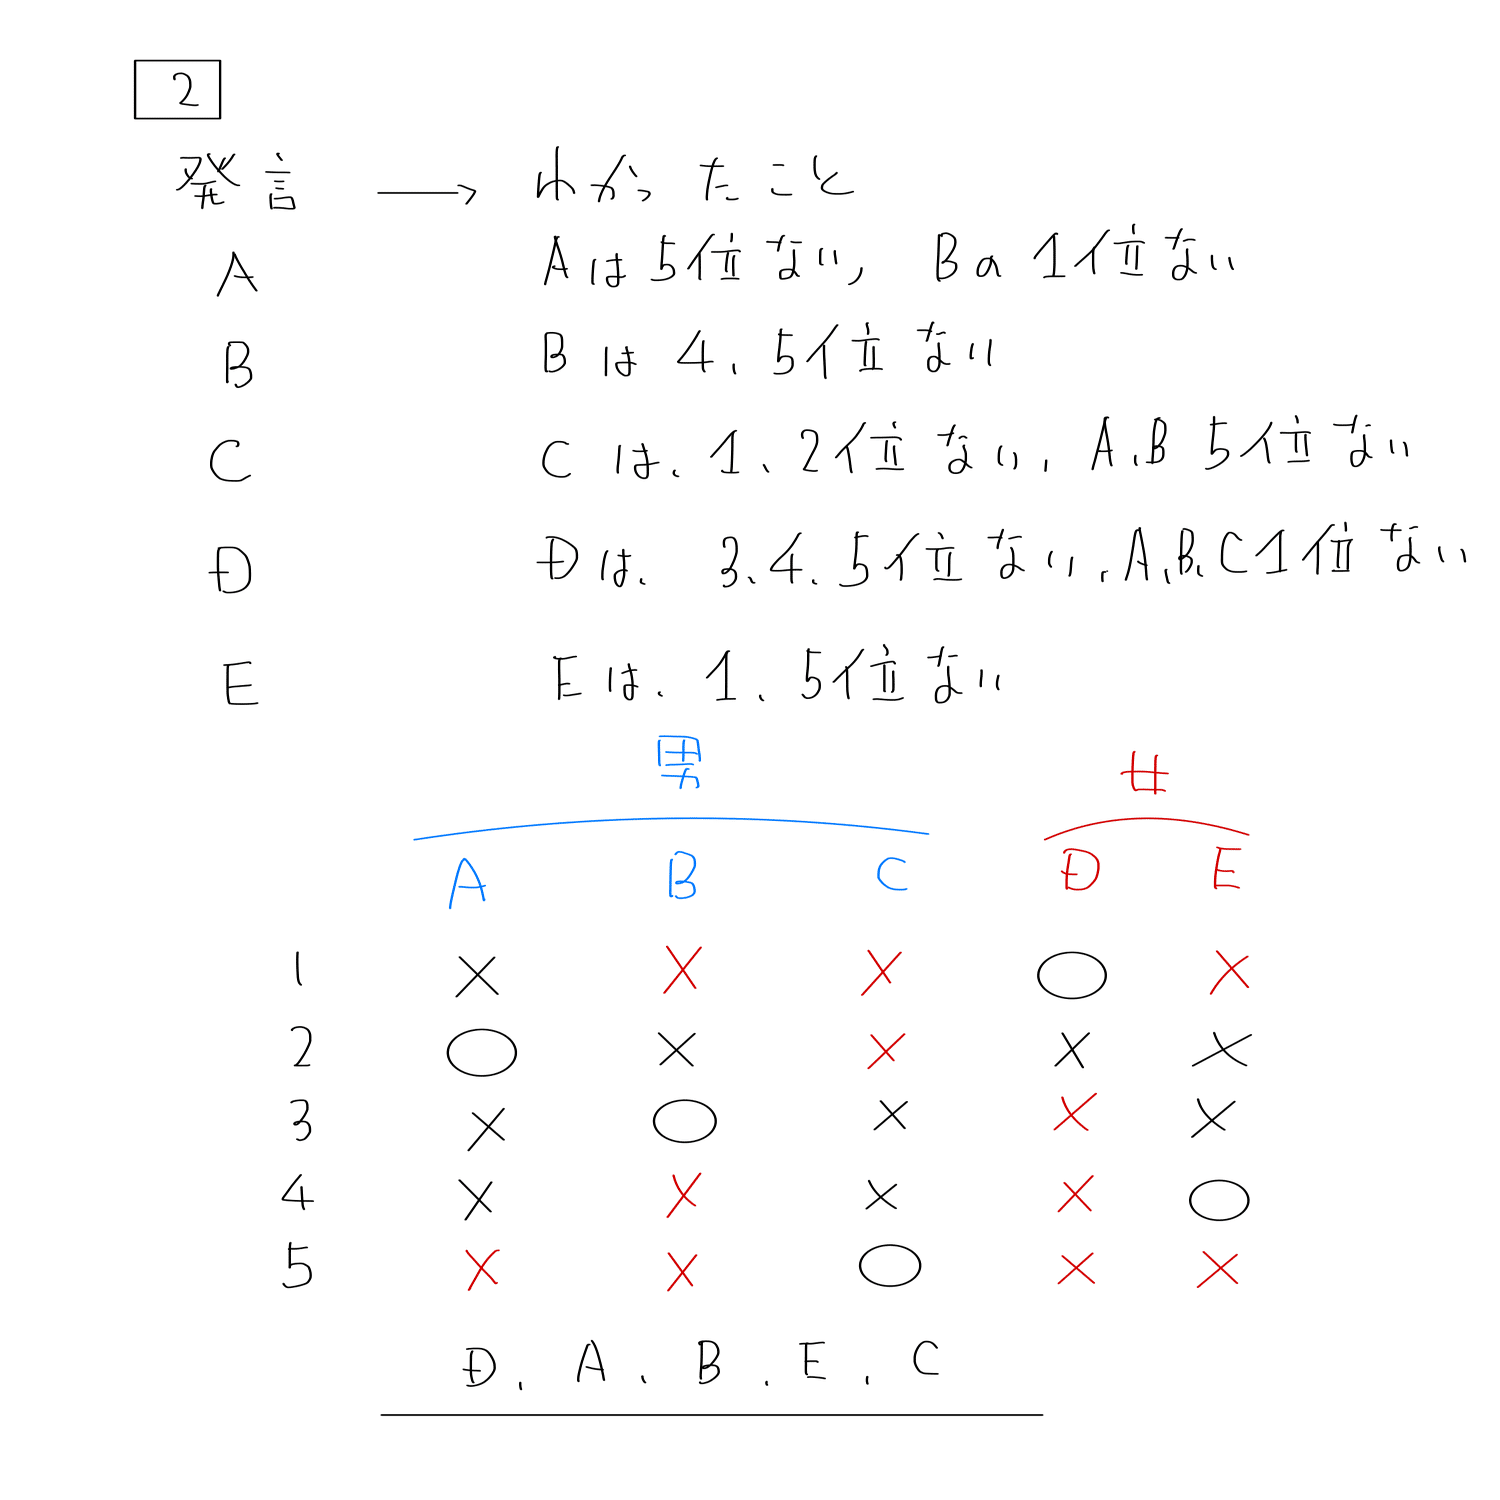 2
発言 → わかったこと
A Aは5位ない, Bの1位ない
B Bは4、5位ない
C Cは、1、2位ない、A、B 5位ない
D Dは、3、4、5位ない、A、B、C1位ない
E Eは、1、5位ない
男 女
A B C D E
1 × × × ○ ×
2 ○ × × × ×
3 × ○ × × ×
4 × × × × ○
5 × × ○ × ×
D、A、B、E、C